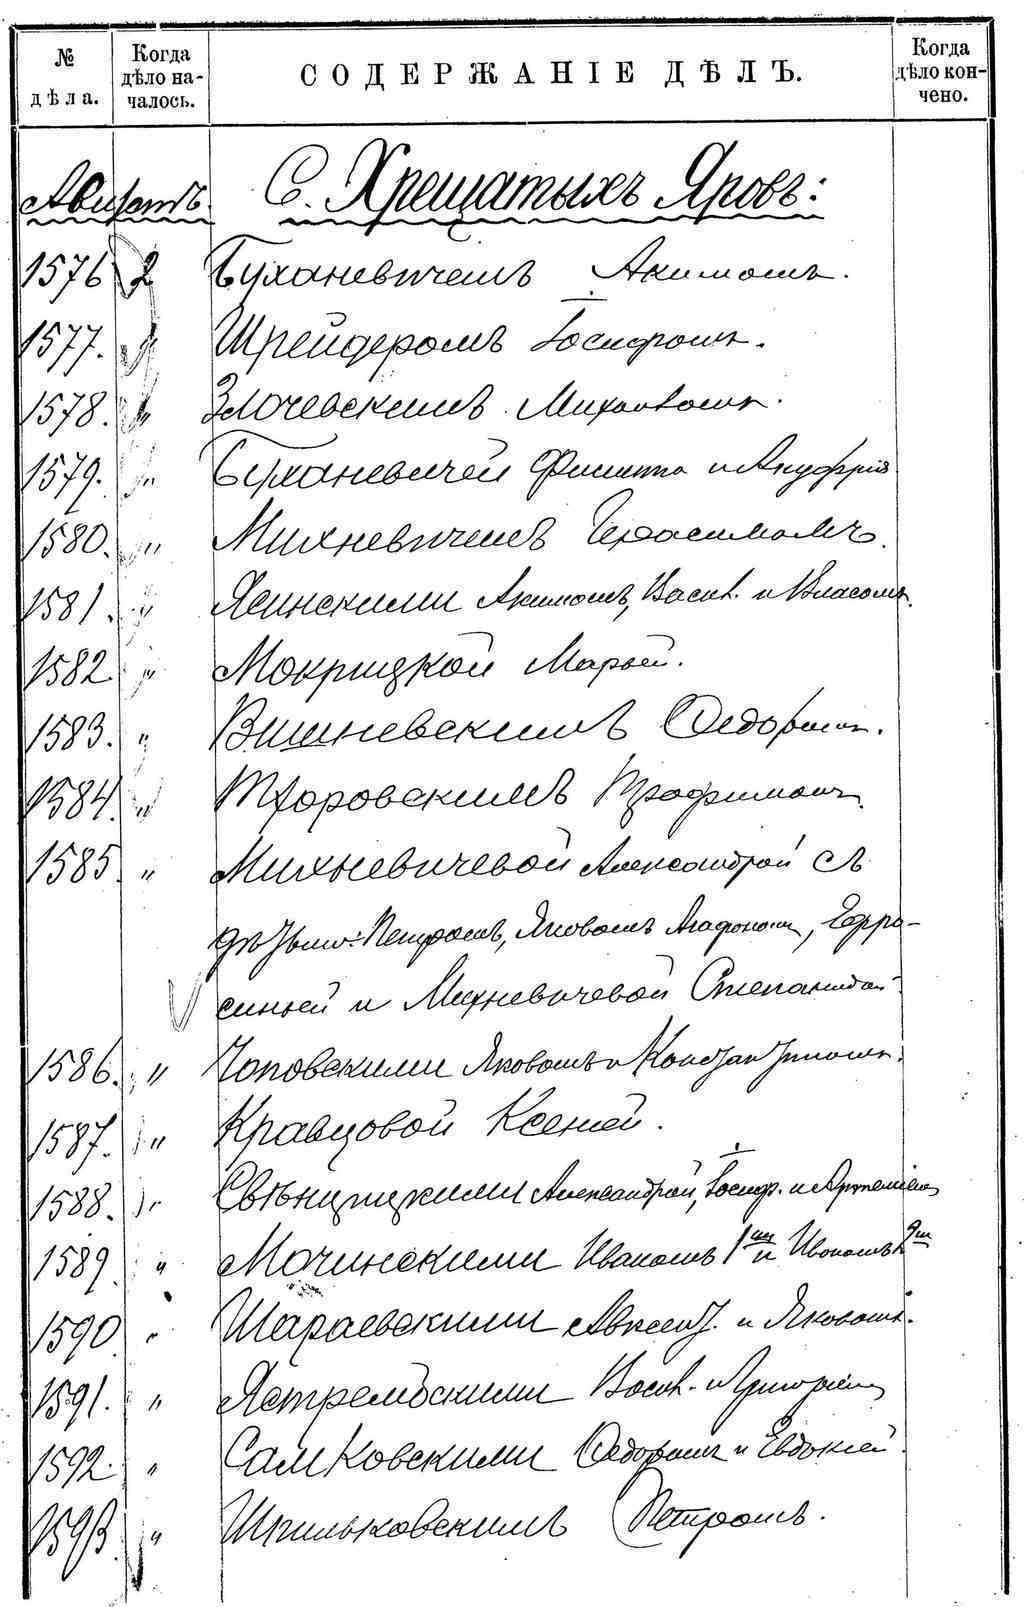 № дѣла. Когда дѣло началось. СОДЕРЖАНІЕ ДѢЛЪ. Когда дѣло кончено.
Августъ. С. Хрещатыхъ Яровъ:
1576 2 Буханевичемъ Акимомъ.
1577. " Шрейдеромъ Іосифомъ.
1578. " Злочевскимъ Михаиломъ.
1579. " Буханевичей Филиппа и Ануфрія
1580. " Михневичемъ Герасимомъ.
1581. " Ясинскими Акимомъ, Васил. и Власомъ.
1582. " Мокрицкой Марьей.
1583. " Вишневскимъ Ѳедоромъ.
1584. " Тхоровскимъ Трофимомъ.
1585. " Михневичевой Александрой съ
дѣтьми: Петромъ, Яковомъ Агафономъ, Ефро-
синьей и Михневичевой Степанидой.
1586. " Чоповскими Яковомъ и Константиномъ.
1587. " Кравцовой Ксеніей.
1588. " Свѣнцицкими Александрой, Іосиф. и Артеміемъ
1589 " Мочинскими Иваномъ 1мъ и Иваномъ 2мъ
1590 " Шараевскими Авксент. и Яковомъ.
1591. " Ястремскими Васил. и Григоріемъ
1592. " Самковскими Ѳедоромъ и Евдокіей.
1593. " Шпильковскимъ Петромъ.